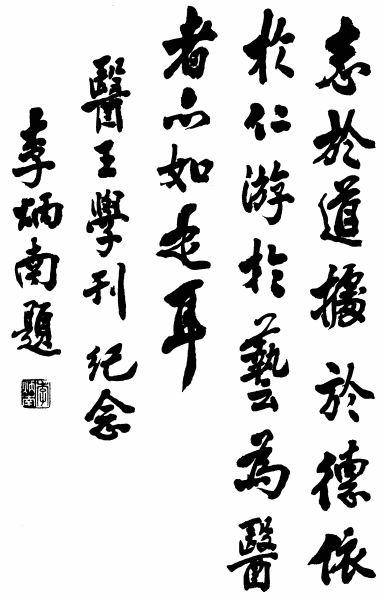 志於道據於德依
於仁游於藝為醫
者亦如是耳
醫王學刊紀念
李炳南題
李炳南